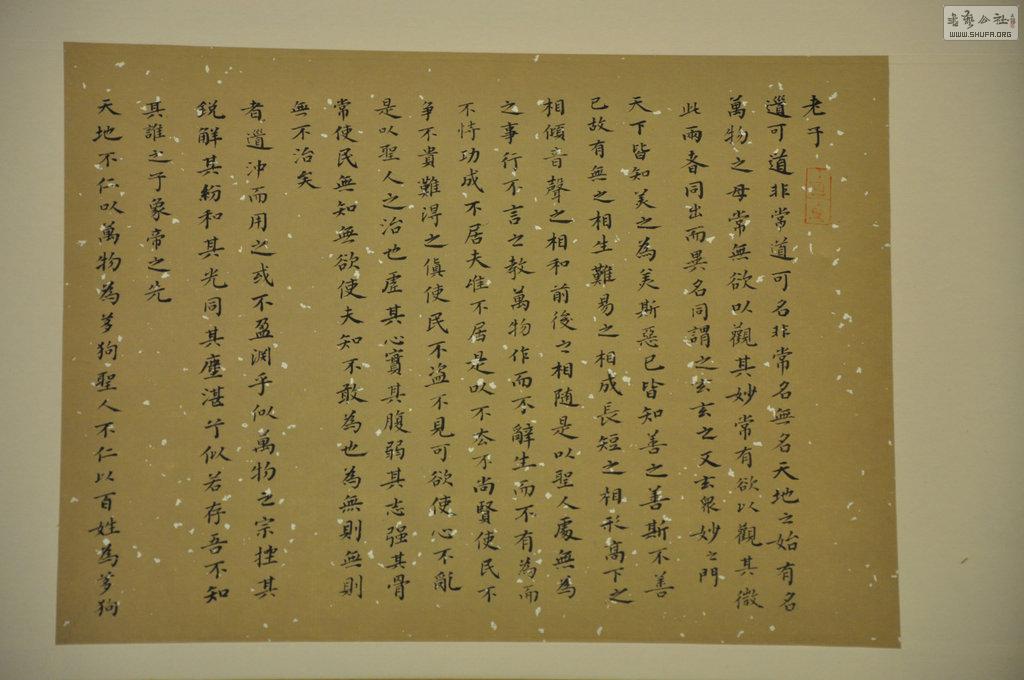 老子
道可道非常道可名非常名無名天地之始有名
萬物之母常無欲以觀其妙常有欲以觀其徼
此兩者同出而異名同謂之玄玄之又玄眾妙之門
天下皆知美之為美斯惡已皆知善之善斯不善
已故有無之相生難易之相成長短之相形高下之
相傾音聲之相和前後之相随是以聖人處無為
之事行不言之教萬物作而不辭生而不有為而
不恃功成不居夫唯不居是以不去不尚賢使民不
爭不貴難得之貨使民不盜不見可欲使心不亂
是以聖人之治也虛其心實其腹弱其志强其骨
常使民無知無欲使夫知不敢為也為無則無則
無不治矣
者道沖而用之或不盈渊乎似萬物之宗挫其
銳解其紛和其光同其塵湛兮似若存吾不知
其誰之子象帝之先
天地不仁以萬物為芻狗聖人不仁以百姓為芻狗
书艺公社
WWW.SHUFA.ORG